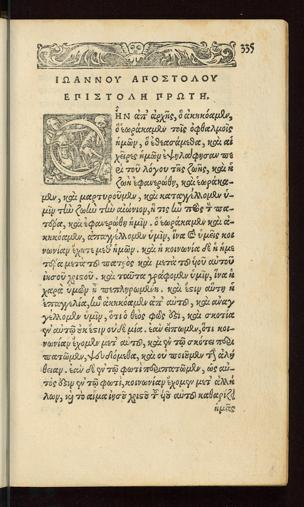 335
ΙΩΑΝΝΟΥ ΑΠΟΣΤΟΛΟΥ
ΕΠΙΣΤΟΛΗ ΠΡΩΤΗ.
Ο ΗΝ ἀπ' ἀρχῆς, ὃ ἀκηκόαμεν,
ὃ ἑωράκαμεν τοῖς ὀφθαλμοῖς
ἡμῶν, ὃ ἐθεασάμεθα, καὶ αἱ
χεῖρες ἡμῶν ἐψηλάφησαν πε
ρὶ τοῦ λόγου τῆς ζωῆς, καὶ ἡ
ζωὴ ἐφανερώθη, καὶ ἑωράκα-
μεν, καὶ μαρτυροῦμεν, καὶ καταγγέλλομεν
ὑμῖν τὴν ζωὴν τὴν αἰώνιον, ἥ τις ἦν πρὸς τὸν πα-
τέρα, καὶ ἐφανερώθη ἡμῖν. ὃ ἑωράκαμεν καὶ ἀ-
κηκόαμεν, ἀπαγγέλλομεν ὑμῖν, ἵνα καὶ ὑμεῖς κοι-
νωνίαν ἔχητε μεθ' ἡμῶν. καὶ ἡ κοινωνία δὲ ἡ ἡμε
τέρα μετὰ τοῦ πατρὸς καὶ μετὰ τοῦ υἱοῦ αὐτοῦ
ἰησοῦ χριστοῦ. καὶ ταῦτα γράφομεν ὑμῖν, ἵνα ἡ
χαρὰ ὑμῶν ᾖ πεπληρωμένη. καὶ ἔστιν αὕτη ἡ
ἐπαγγελία, ἣν ἀκηκόαμεν ἀπ' αὐτοῦ, καὶ ἀναγ
γέλλομεν ὑμῖν, ὅτι ὁ θεὸς φῶς ἐστι, καὶ σκοτία
ἐν αὐτῷ οὐκ ἔστιν οὐδεμία. ἐὰν εἴπωμεν, ὅτι κοι-
νωνίαν ἔχομεν μετ' αὐτοῦ, καὶ ἐν τῷ σκότει περι
πατῶμεν, ψευδόμεθα, καὶ οὐ ποιοῦμεν τὴν ἀλή
θειαν. ἐὰν δὲ ἐν τῷ φωτὶ περιπατῶμεν, ὡς αὐ-
τός ἐστιν ἐν τῷ φωτί, κοινωνίαν ἔχομεν μετ' ἀλλή
λων, καὶ τὸ αἷμα ἰησοῦ χριστοῦ τοῦ υἱοῦ αὐτοῦ καθαρίζει
ἡμᾶς